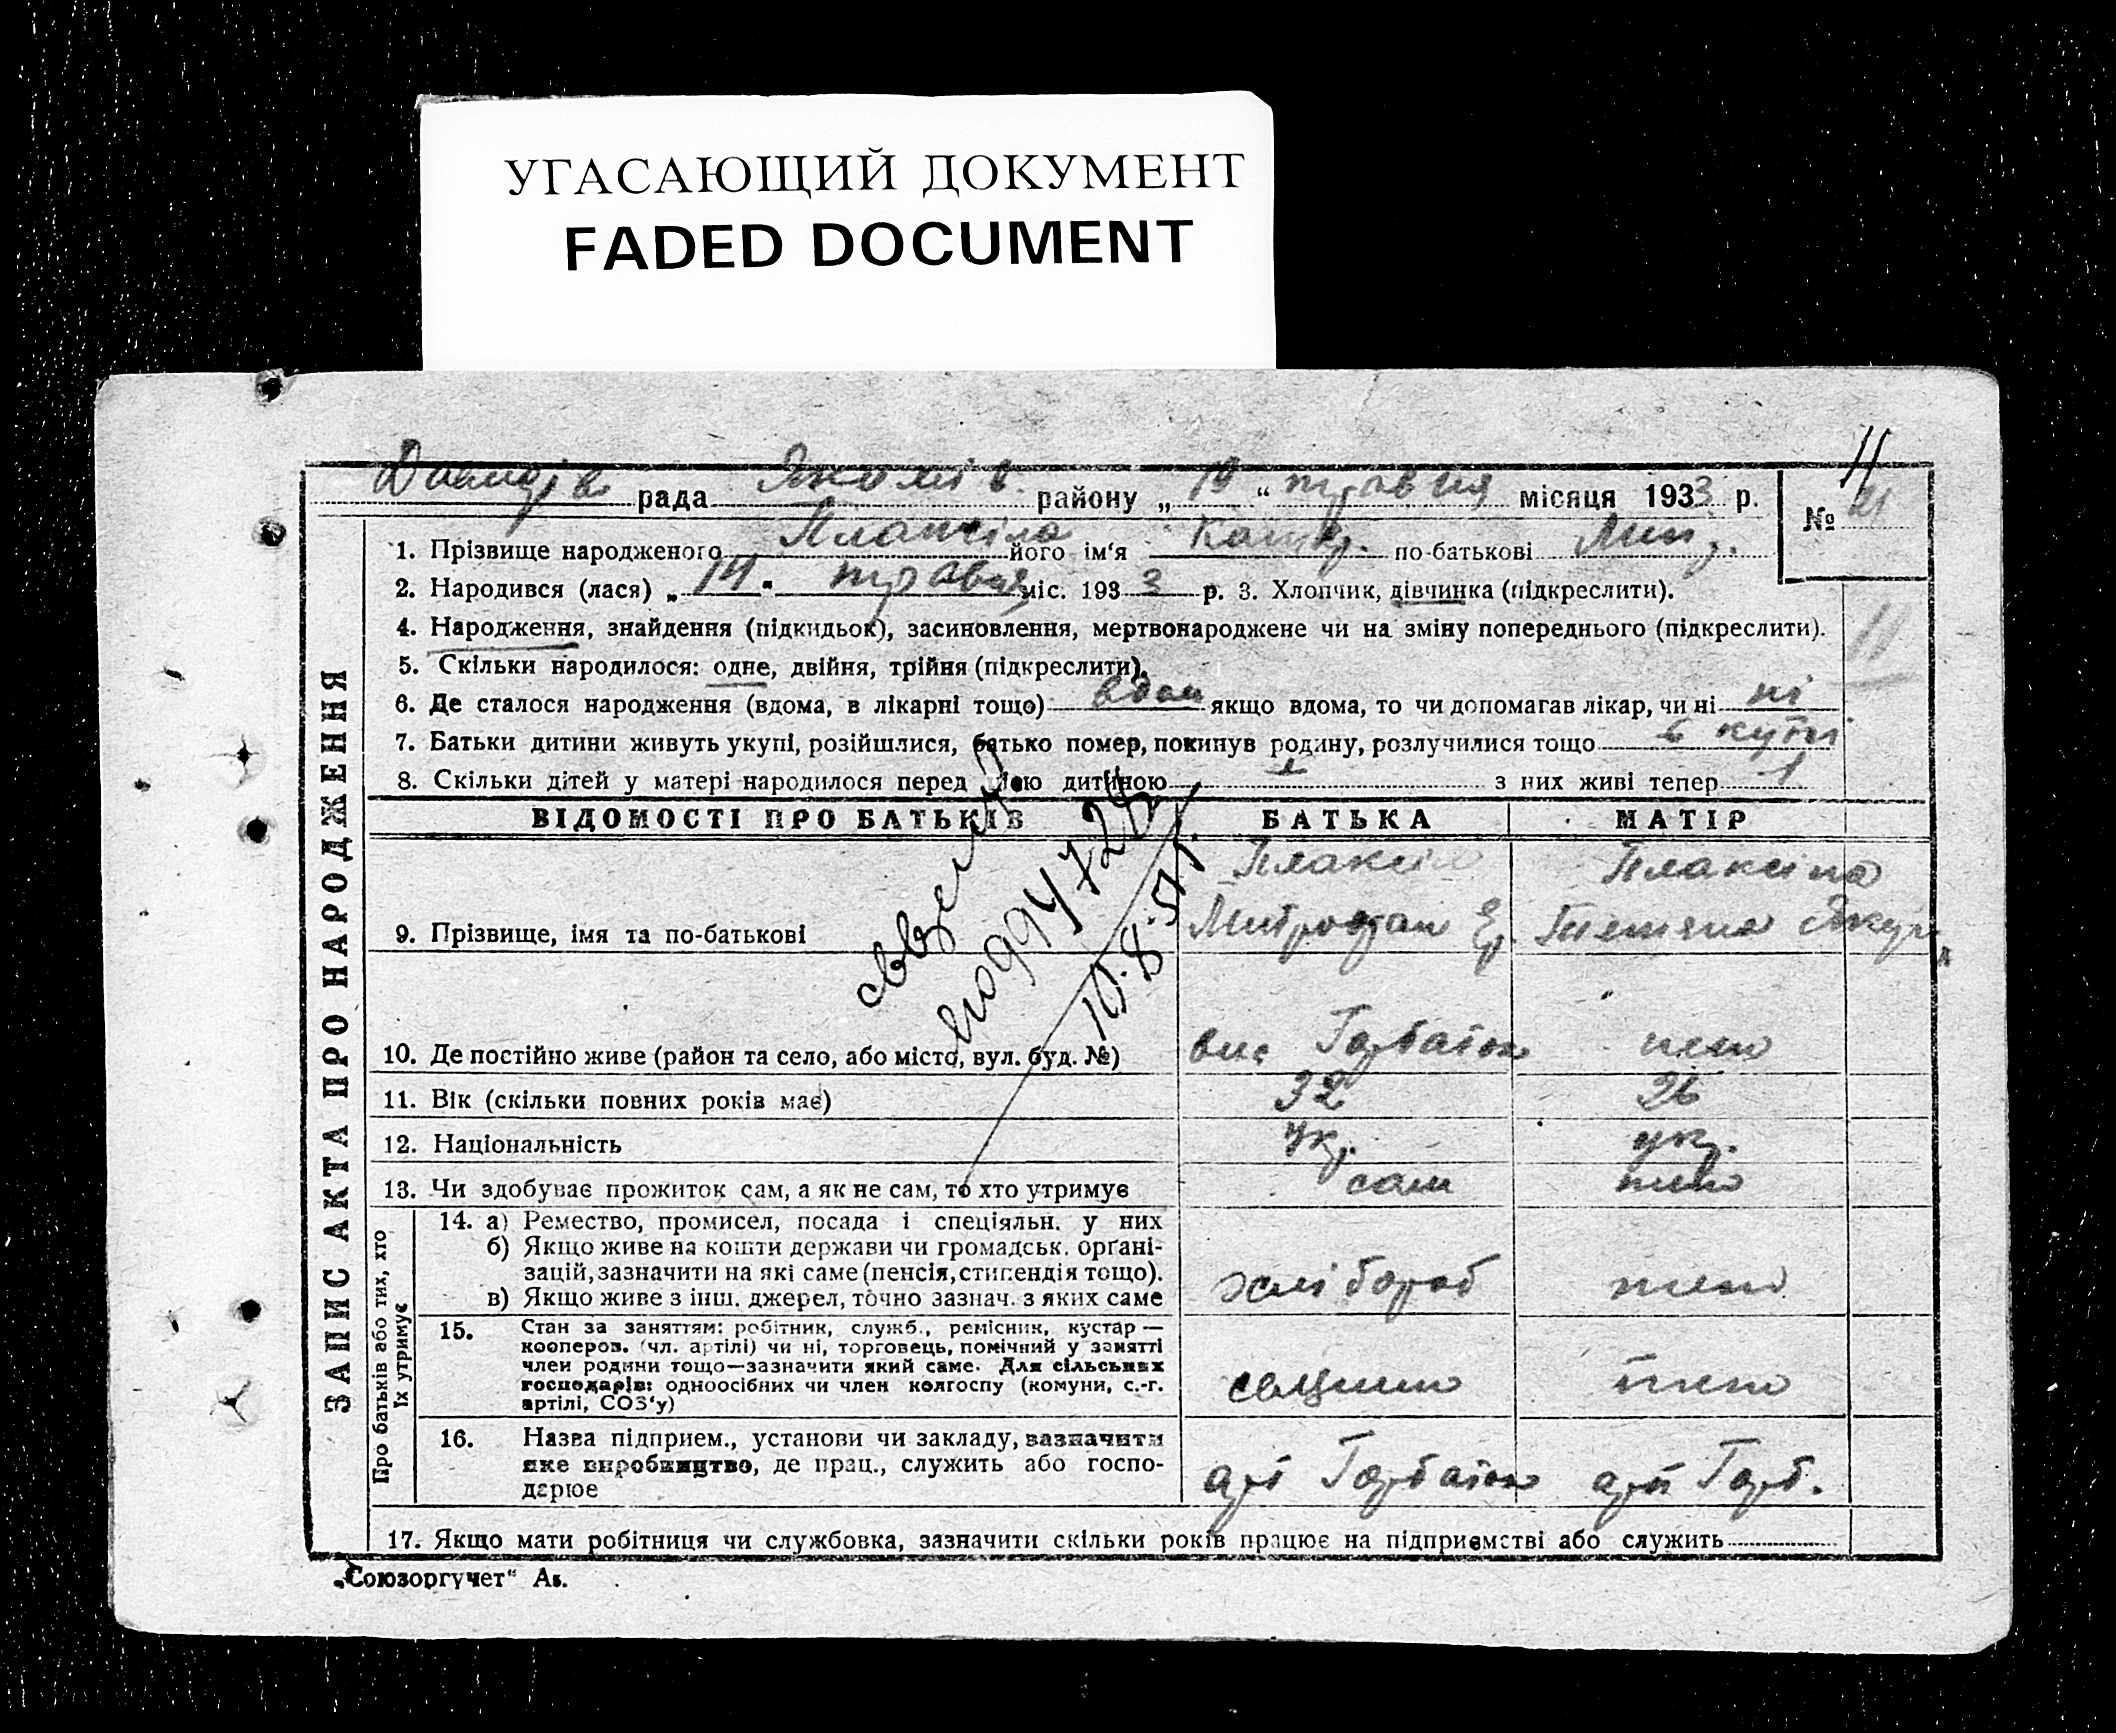 УГАСАЮЩИЙ ДОКУМЕНТ
FADED DOCUMENT
11
Давидів. рада Якимів. району „ 19 “ травня місяця 1933 р. № 21
1. Прізвище народженого Плаксіна його ім'я Катер. по-батькові Мит.
2. Народився (лася) „ 14 " травня міс. 1933 р. 3. Хлопчик, дівчинка (підкреслити).
4. Народження, знайдення (підкидьок), засиновлення, мертвонароджене чи на зміну попереднього (підкреслити).
11
5. Скільки народилося: одне, двійня, трійня (підкреслити).
6. Де сталося народження (вдома, в лікарні тощо) вдом якщо вдома, то чи допомагав лікар, чи ні ні
7. Батьки дитини живуть укупі, розійшлися, батько помер, покинув родину, розлучилися тощо в купі
8. Скільки дітей у матері народилося перед цією дитиною 1 з них живі тепер 1
ЗАПИС АКТА ПРО НАРОДЖЕННЯ
ВІДОМОСТІ ПРО БАТЬКІВ БАТЬКА МАТІР
9. Прізвище, імя та по-батькові Плаксін Плаксіна
Митрофан Єг. Тетяна Якун
10. Де постійно живе (район та село, або місто, вул. буд. №) вис Горбаток тено
11. Вік (скільки повних років має) 32 26
12. Національність Ук. ук.
13. Чи здобуває прожиток сам, а як не сам, то хто утримує сам тено
Про батьків або тих, хто
їх утримує
14. а) Ремество, промисел, посада і спеціяльн. у них
б) Якщо живе на кошти держави чи громадськ. орґані-
зацій, зазначити на які саме (пенсія, стипендія тощо).
в) Якщо живе з інш. джерел, точно зазнач. з яких саме хлібороб тено
15. Стан за заняттям: робітник, служб., ремісник, кустар —
кооперов. (чл. артілі) чи ні, торговець, помічний у занятті
член родини тощо—зазначити який саме. Для сільських
господарів: одноосібних чи член колгоспу (комуни, с.-г.
артілі, СОЗ'у) тено
16. Назва підприєм., установи чи закладу, зазначити
яке виробництво, де прац., служить або госпо-
дарює арт Горбаток арт Горб.
17. Якщо мати робітниця чи службовка, зазначити скільки років працює на підприємстві або служить
„Союзоргучет“ Ав.
10.8.51